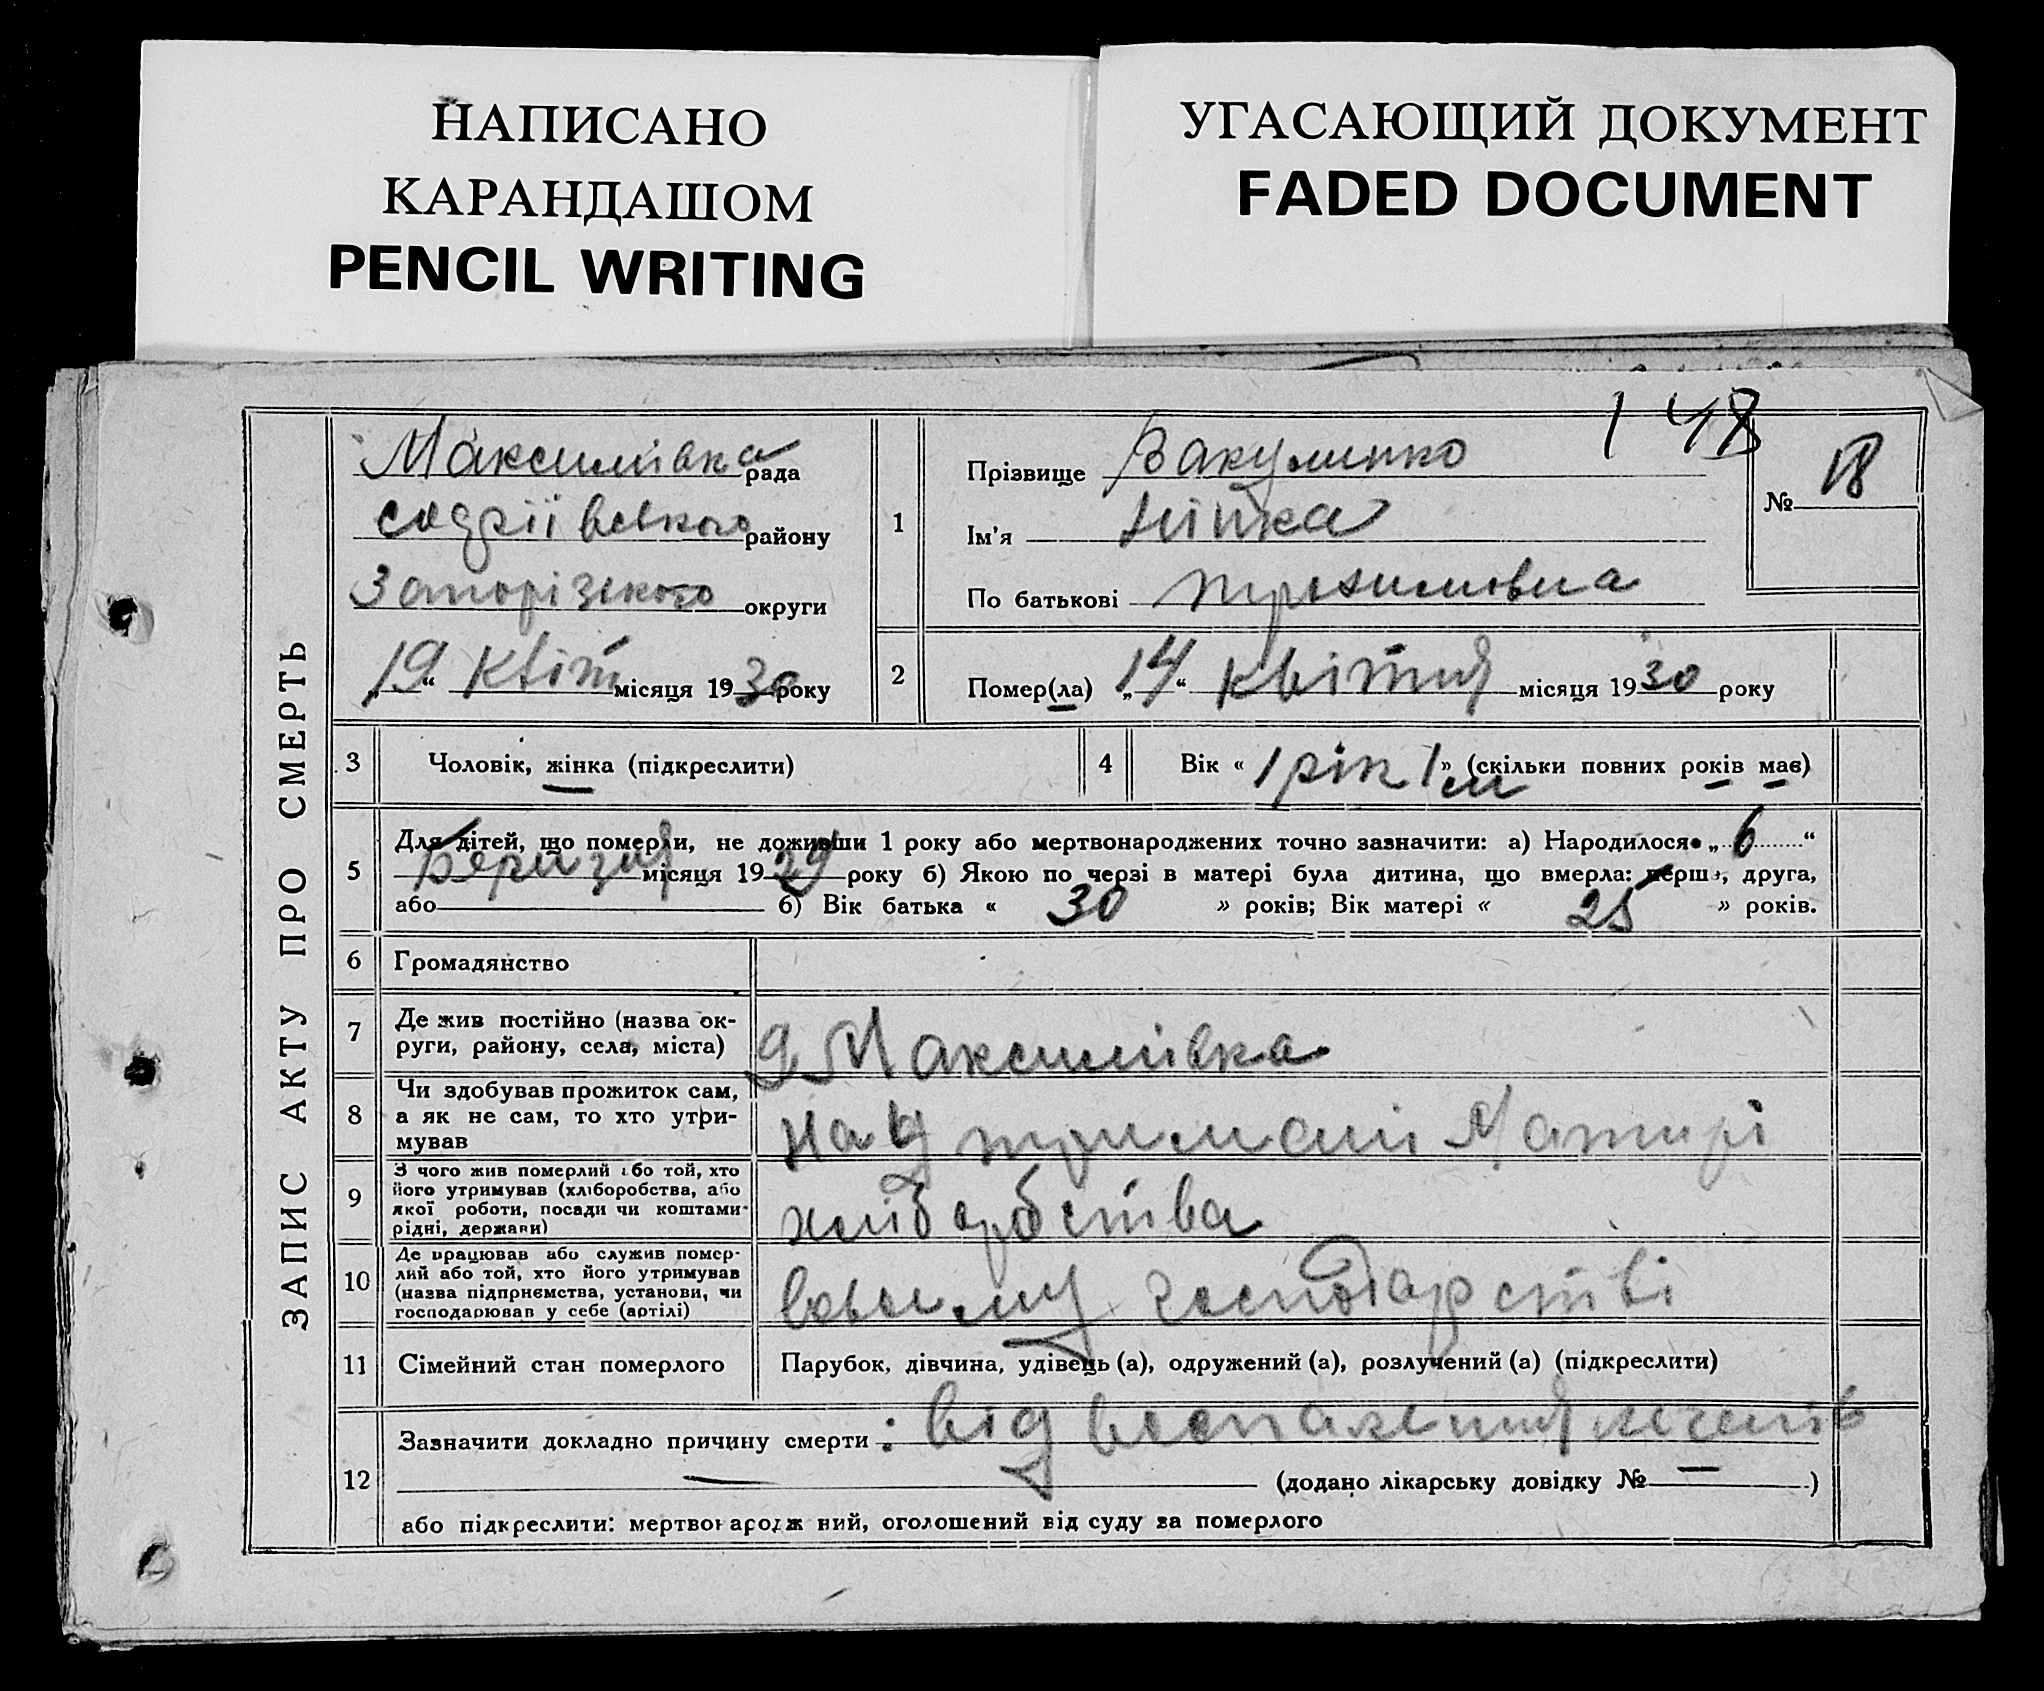 НАПИСАНО
КАРАНДАШОМ
PENCIL WRITING
УГАСАЮЩИЙ ДОКУМЕНТ
FADED DOCUMENT
148
ЗАПИС АКТУ ПРО СМЕРТЬ
Максимівка рада
району
Запорізкого округи
„19“ квіт місяця 1930 року
1
Прізвище Вакуленко
Ім'я
По батькові
№ 18
2
Помер(ла) „14“ квітня місяця 1930 року
3 Чоловік, жінка (підкреслити)
4 Вік « 1 рік 1 м » (скільки повних років має)
5 Для дітей, що померли, не доживши 1 року або мертвонароджених точно зазначити: а) Народилося „6“
Березня місяця 1929 року б) Якою по черзі в матері була дитина, що вмерла: перша, друга,
або б) Вік батька « 30 » років; Вік матері « 25 » років.
6 Громадянство
7 Де жив постійно (назва ок-
руги, району, села, міста)
Максимівка
8 Чи здобував прожиток сам,
а як не сам, то хто утри-
мував
на утримані Матирі
9 З чого жив померлий або той, хто
його утримував (хліборобства, або
якої роботи, посади чи коштами
рідні, держави)
хліборобства
10 Де працював або служив помер-
лий або той, хто його утримував
(назва підприємства, установи, чи
господарював у себе (артілі)
всвоєму господарстві
11 Сімейний стан померлого Парубок, дівчина, удівець (а), одружений (а), розлучений (а) (підкреслити)
12 Зазначити докладно причину смерти : від воспаления легенів
— (додано лікарську довідку № — )
або підкреслити: мертвонароджений, оголошений від суду за померлого